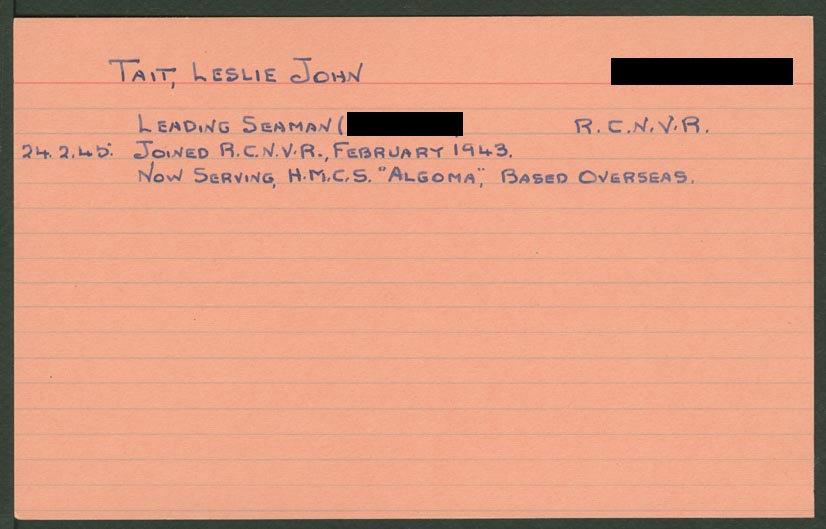 TAIT, LESLIE JOHN
LEADING SEAMAN ( R.C.N.V.R.
24.2.45. JOINED R.C.N.V.R., FEBRUARY 1943.
NOW SERVING, H.M.C.S. "ALGOMA", BASED OVERSEAS.